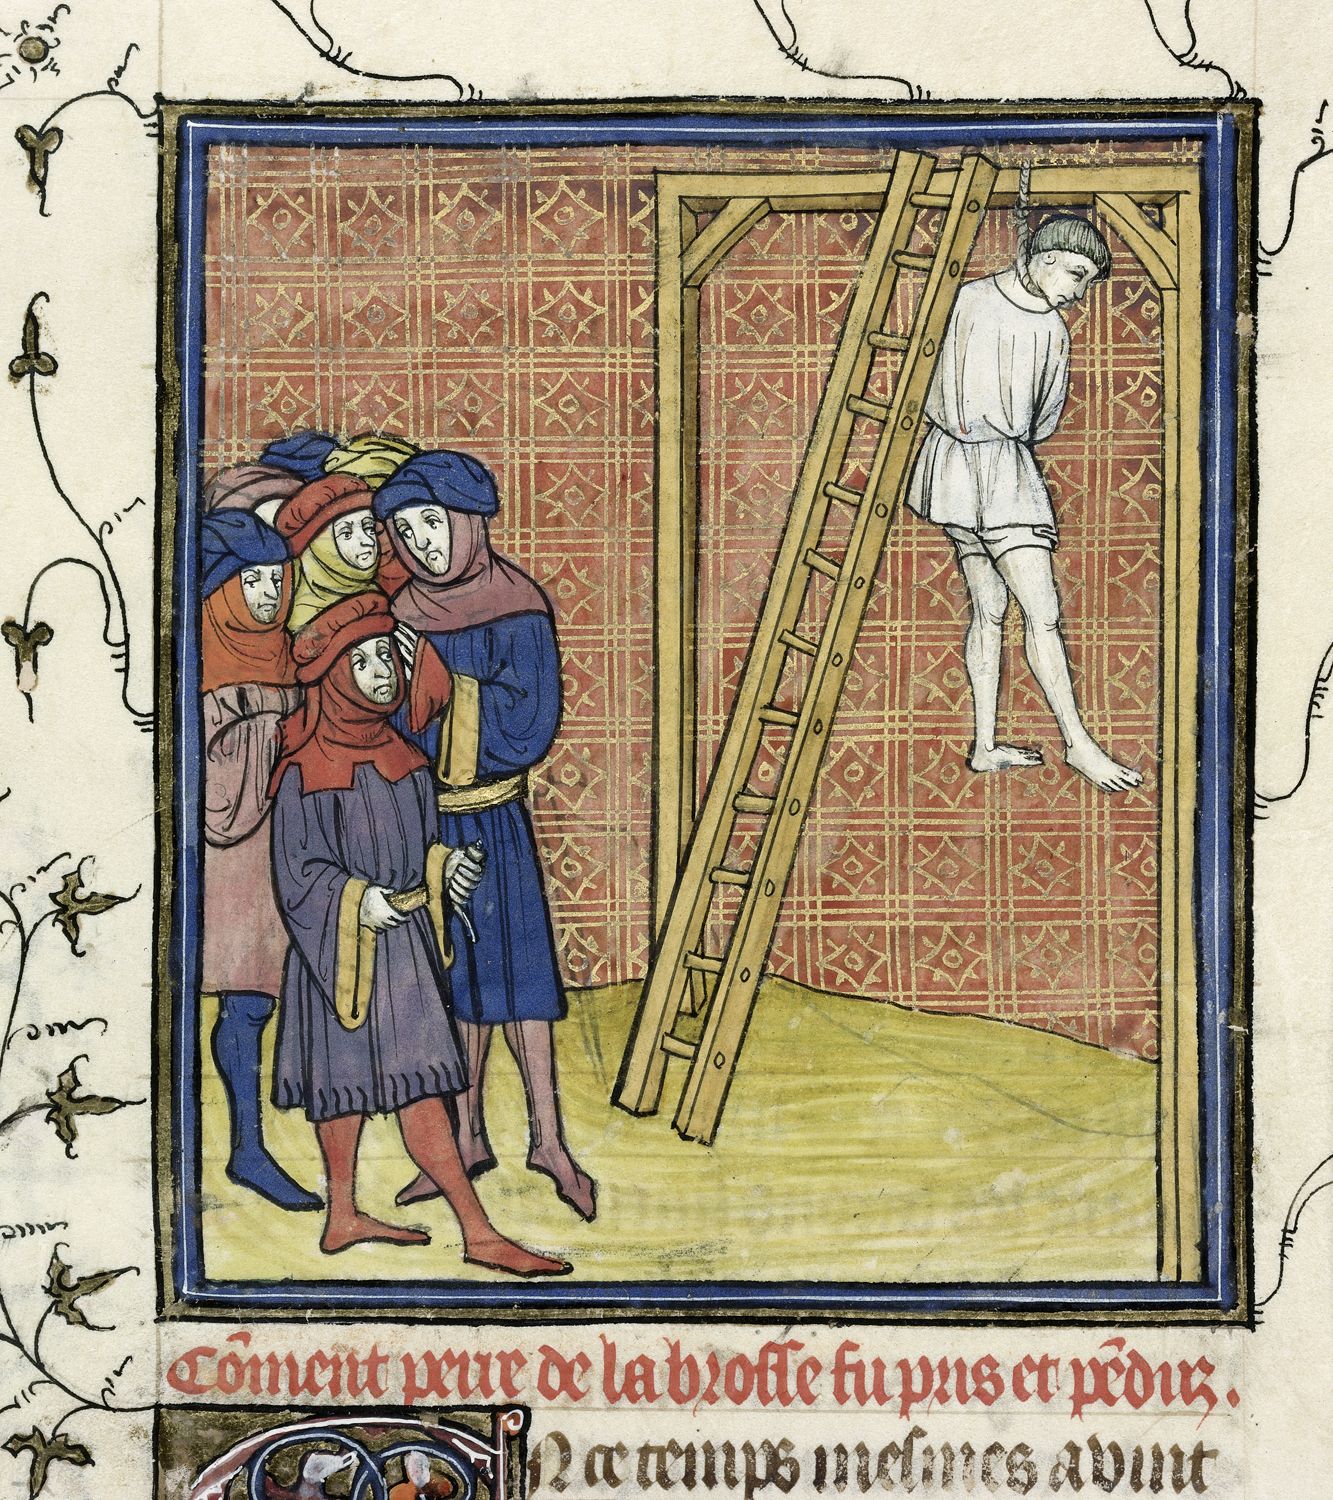 Cōment pierre de la brosse fu pris et pēduz.
En ce temps mesmes avint